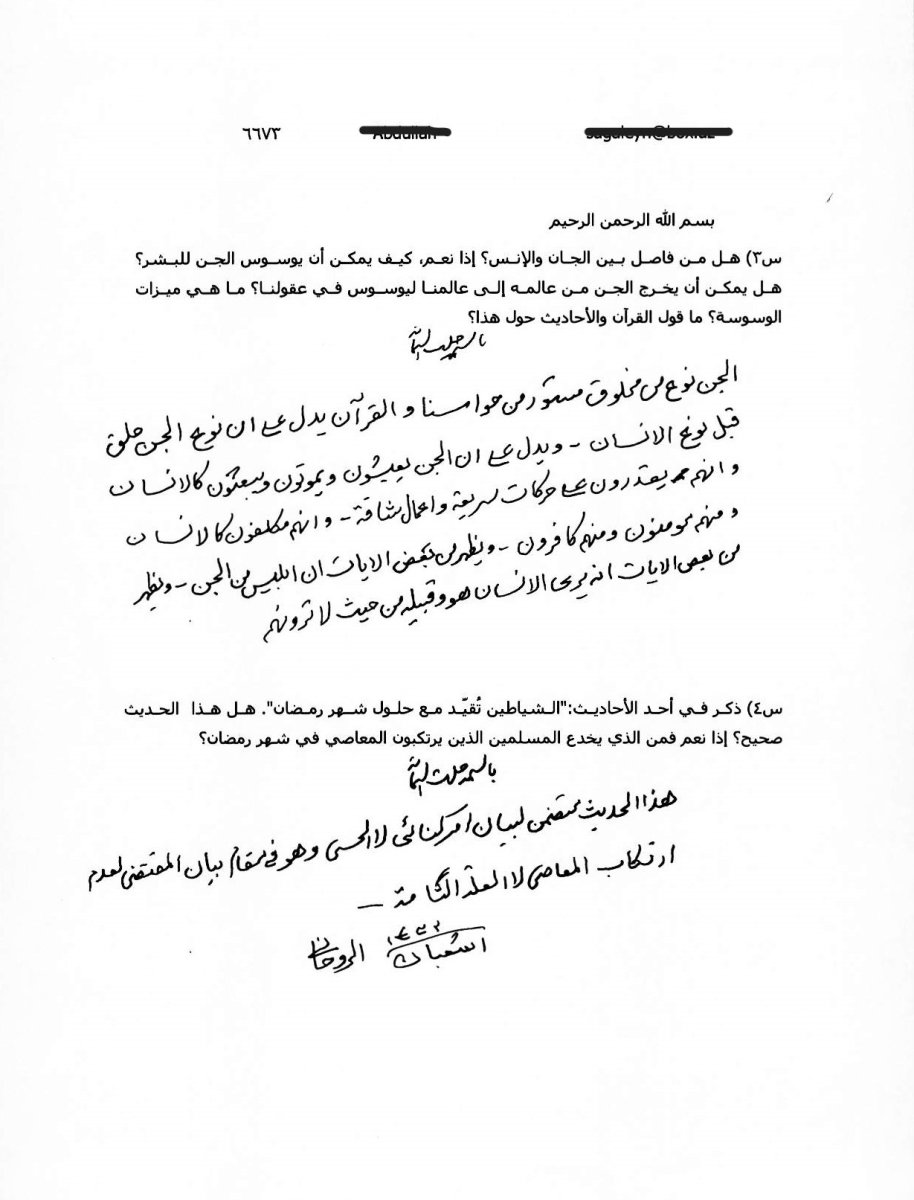 ٦٦٧٣
بسم الله الرحمن الرحيم
س٣) هل من فاصل بين الجان والإنس؟ إذا نعم، كيف يمكن أن يوسوس الجن للبشر؟
هل يمكن أن يخرج الجن من عالمه إلى عالمنا ليوسوس في عقولنا؟ ما هي ميزات
الوسوسة؟ ما قول القرآن والأحاديث حول هذا؟
باسمه جلت اسمائه
الجن نوع من مخلوق مستور من حواسنا و القرآن يدل على ان نوع الجن خلق
قبل نوع الانسان - ويدل على ان الجن يعيشون ويموتون ويبعثون كالانسان
و انهم يقدرون على حركات سريعة و اعمال شاقة - و انهم مكلفون كالانسان
و منهم مومنون ومنهم كافرون - ويظهر من بعض الايات ان ابليس من الجن - ويظهر
من بعض الايات انه يرى الانسان هو و قبيله من حيث لا ترونهم
س٤) ذكر في أحد الأحاديث:"الشياطين تُقيّد مع حلول شهر رمضان". هل هذا الحديث
صحيح؟ إذا نعم فمن الذي يخدع المسلمين الذين يرتكبون المعاصي في شهر رمضان؟
باسمه جلت اسمائه
هذا الحديث متضمن لبيان امر كنائي لا الحسي وهو في مقام بيان المقتضي لعدم
ارتكاب المعاصي لا العلة التامة -
شعبان الروحاني